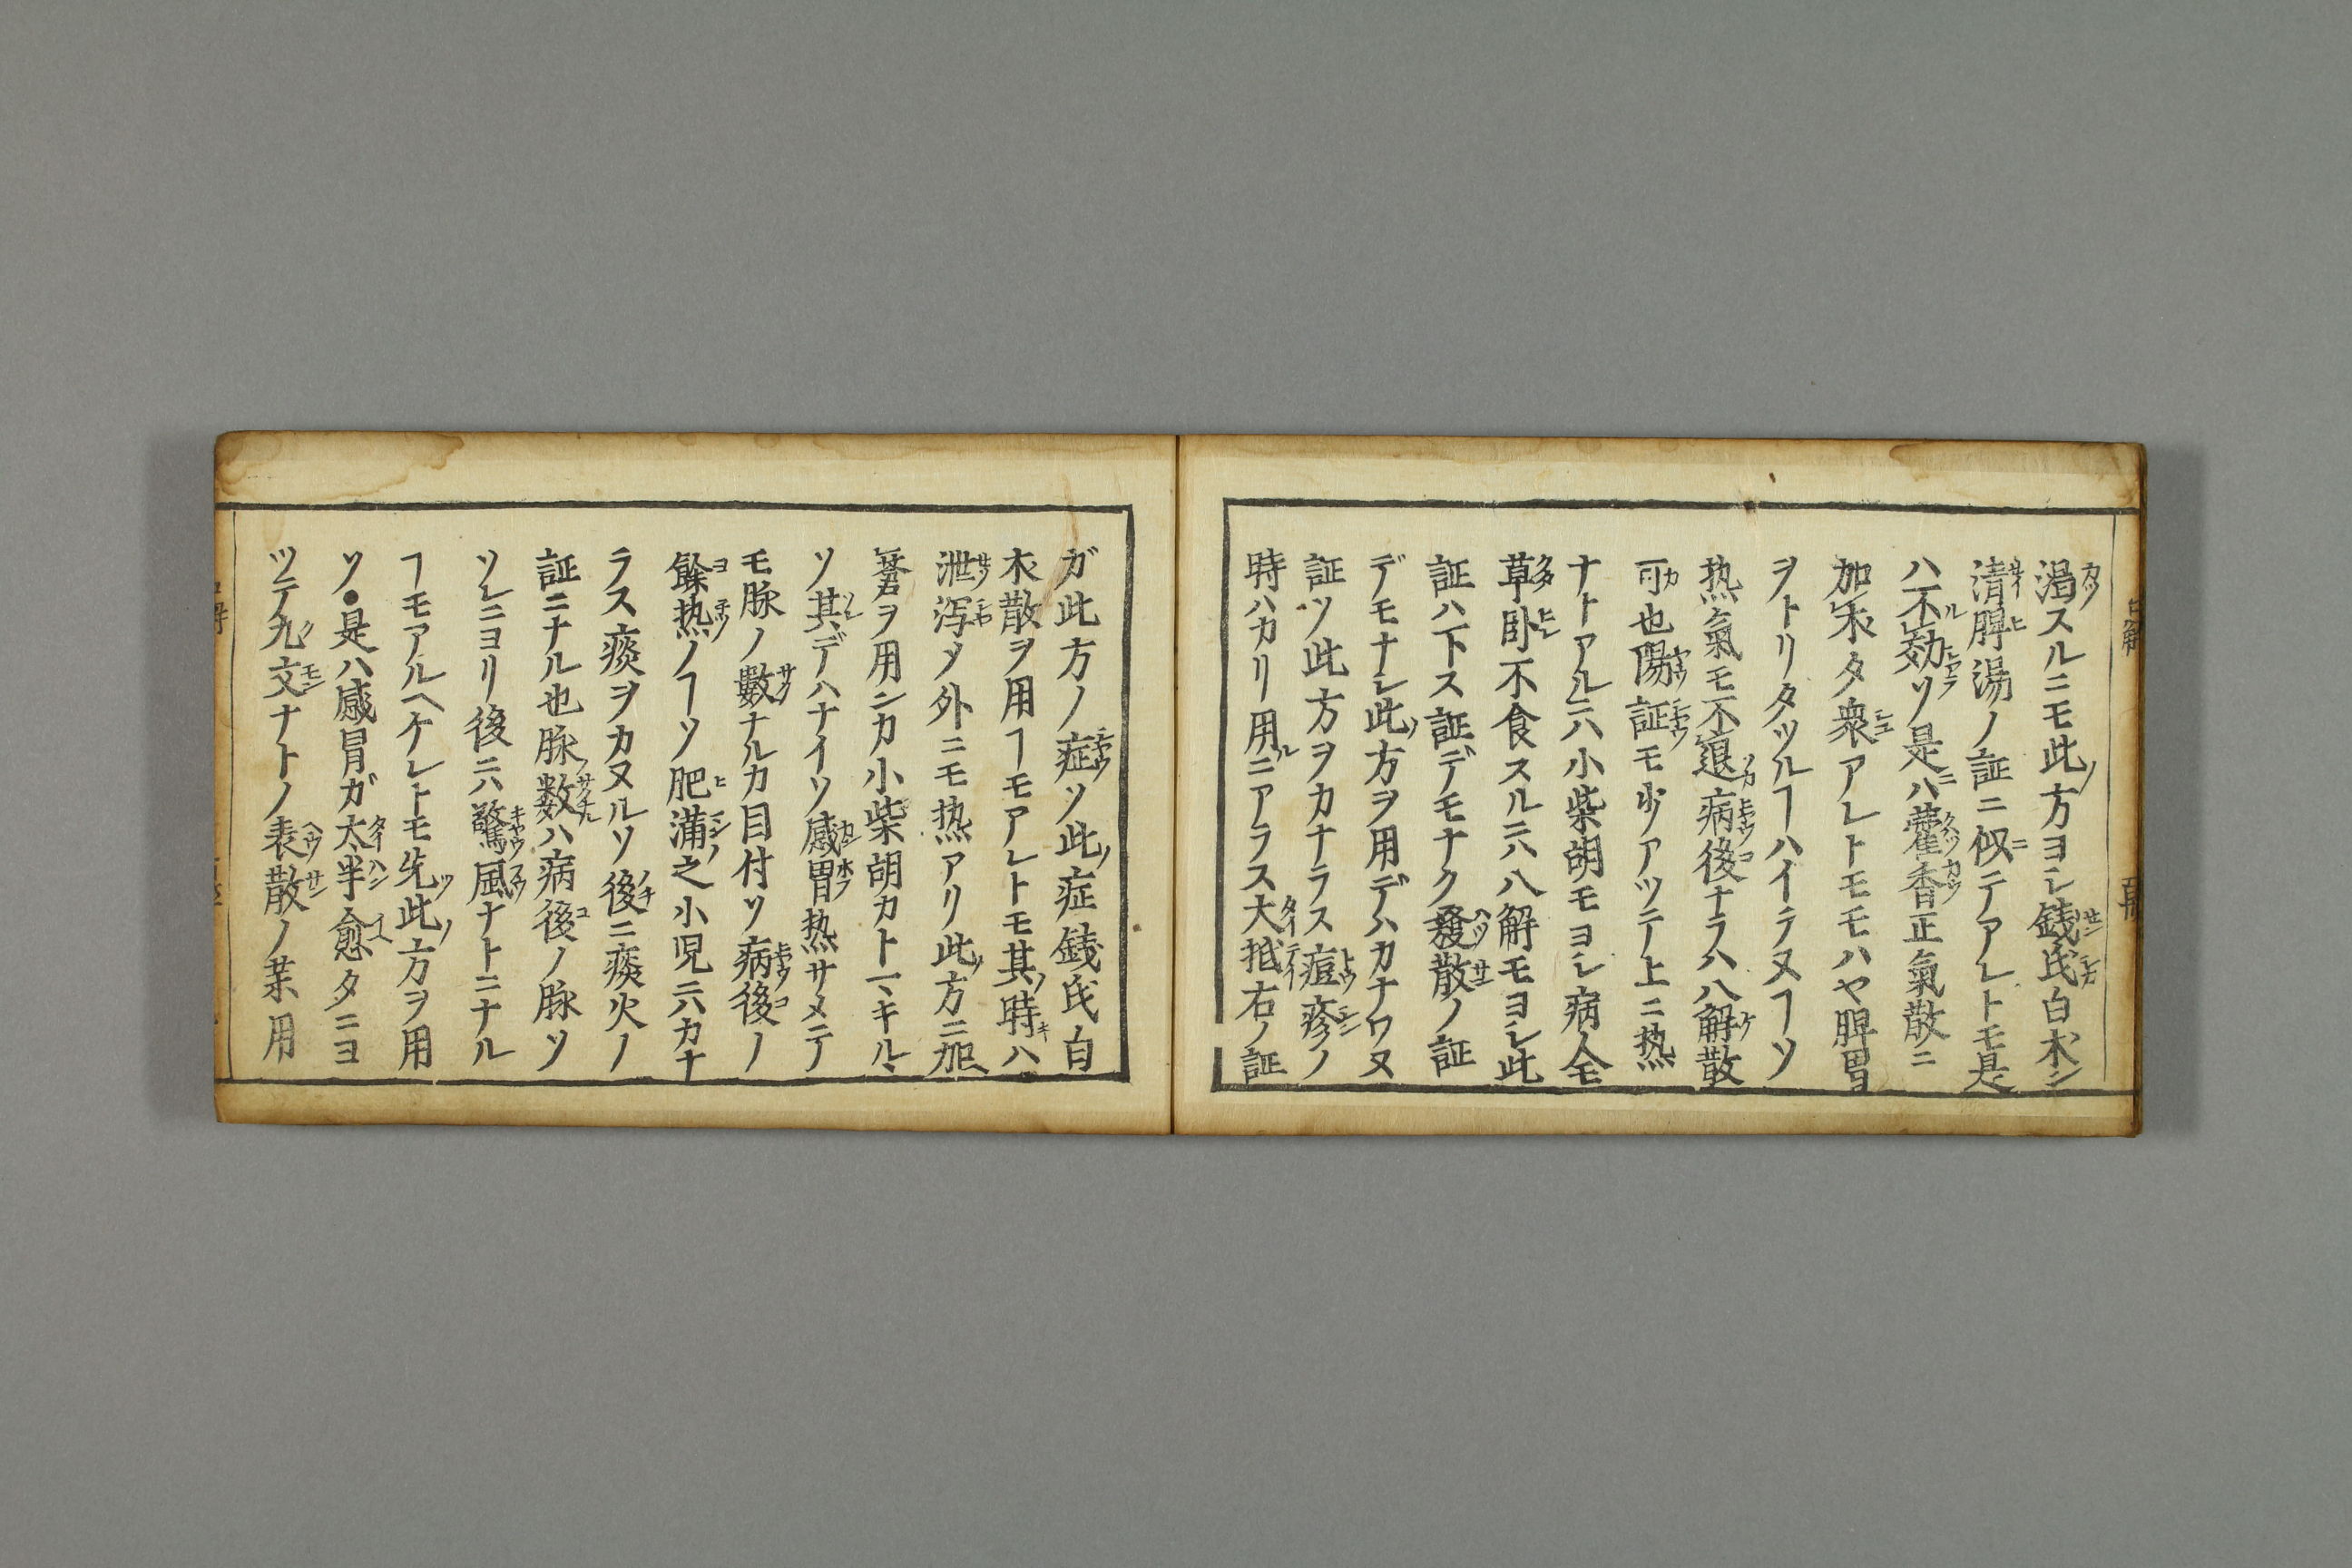 渇スルニモ此方ヨシ銭氏白朮
清脾湯ノ証ニ似テアレトモ是
ハ不効ソ是ハ藿香正氣散ニ
加朮タ衆アレトモモハヤ脾胃
ヲトリタツルヿハイラヌヿソ
热氣モ不退病後ナラハ八解散
可也陽証モ少アツテ上ニ热
ナトアルニハ小柴胡モヨシ病全
草卧不食スルニハ八解モヨシ此
証ハ下ス証デモナク發散ノ証
デモナシ此方ヲ用デハカナワヌ
証ソ此方ヲカナラス痘疹ノ
時ハカリ用ニアラス大抵右ノ証
ガ此方ノ症ソ此症銭氏白
朮散ヲ用ヿモアレトモ其時ハ
泄瀉メ外ニモ热アリ此方ニ加
蒼ヲ用ンカ小柴胡カトマキル丶
ソ其デハナイソ感冒热サメテ
モ脉ノ數ナルカ目付ソ病後ノ
餘热ノヿソ肥満之小児ニハカナ
ラス痰ヲカヌルソ後ニ痰火ノ
証ニナル也脉数ハ病後ノ脉ソ
ソレニヨリ後ニハ驚風ナトニナル
ヿモアルヘケレトモ先此方ヲ用
ソ●是ハ感冒ガ太半愈タニヨ
ツテ九文ナトノ表散ノ薬用